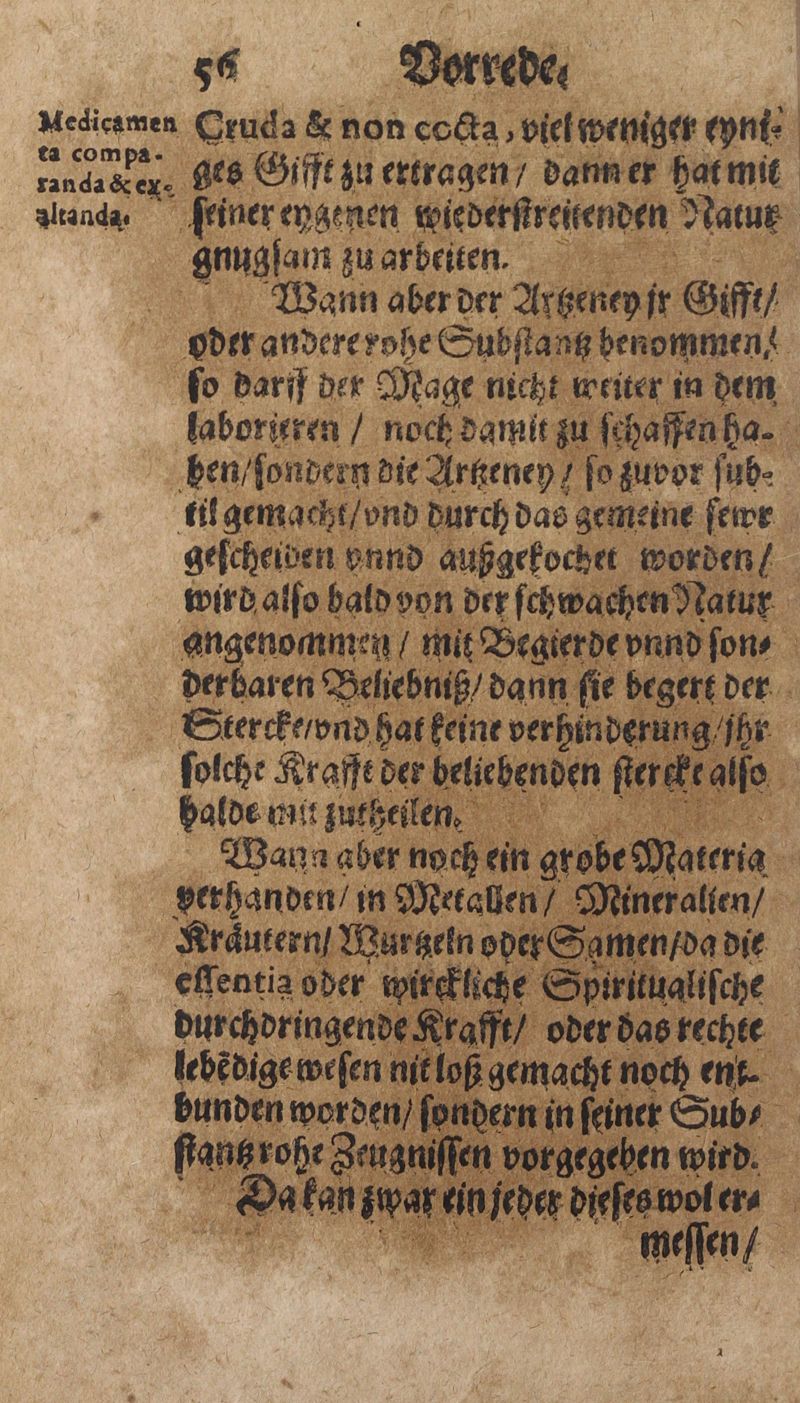 56 Vorrede.
Medicamen
ta compa-
randa & ex-
altanda.
Cruda & non cocta, viel weniger eyni-
ges Gifft zu ertragen / dann er hat mit
ſeiner eygenen wiederſtreitenden Natur
gnugſam zu arbeiten.
Wann aber der Artzeney jr Gifft /
oder andere rohe Subſtantz benommen /
ſo darff der Mage nicht weiter in dem
laborieren / noch damit zu ſchaffen ha-
ben / ſondern die Artzeney / ſo zuvor ſub-
til gemacht / vnd durch das gemeine fewr
geſcheiden vnnd außgekochet worden /
wird alſo bald von der ſchwachen Natur
angenommen / mit Begierde vnnd ſon-
derbaren Beliebniß / dann ſie begert der
Stercke / vnd hat keine verhinderung / jhr
ſolche Krafft der beliebenden ſtercke alſo
balde mit zutheilen.
Wann aber noch ein grobe Materia
verhanden / in Metallen / Mineralien /
Kräutern / Wurtzeln oder Samen / da die
eſſentia oder wirckliche Spiritualiſche
durchdringende Krafft / oder das rechte
lebẽdige weſen nit loß gemacht noch ent-
bunden worden / ſondern in ſeiner Sub-
ſtantz rohe Zeugniſſen vorgegeben wird.
Da kan zwar ein jeder dieſes wol er-
meſſen /